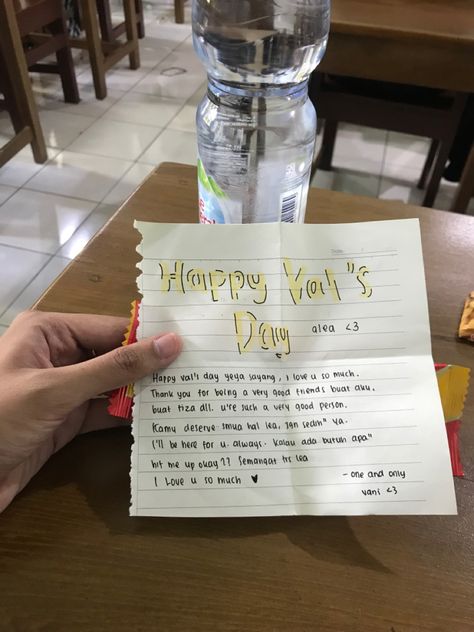 Happy Val's
Day
alea <3
Happy val's day yeya sayang, i love u so much.
Thank you for being a very good friends buat aku,
buat tiza dll. u're such a very good person.
Kamu deserve smua hal lea, jgn sedih" ya.
I'll be here for u. always. Kalau ada butuh apa"
hit me up okay?? Semangat trs lea
I love u so much ♥
- one and only
vani <3